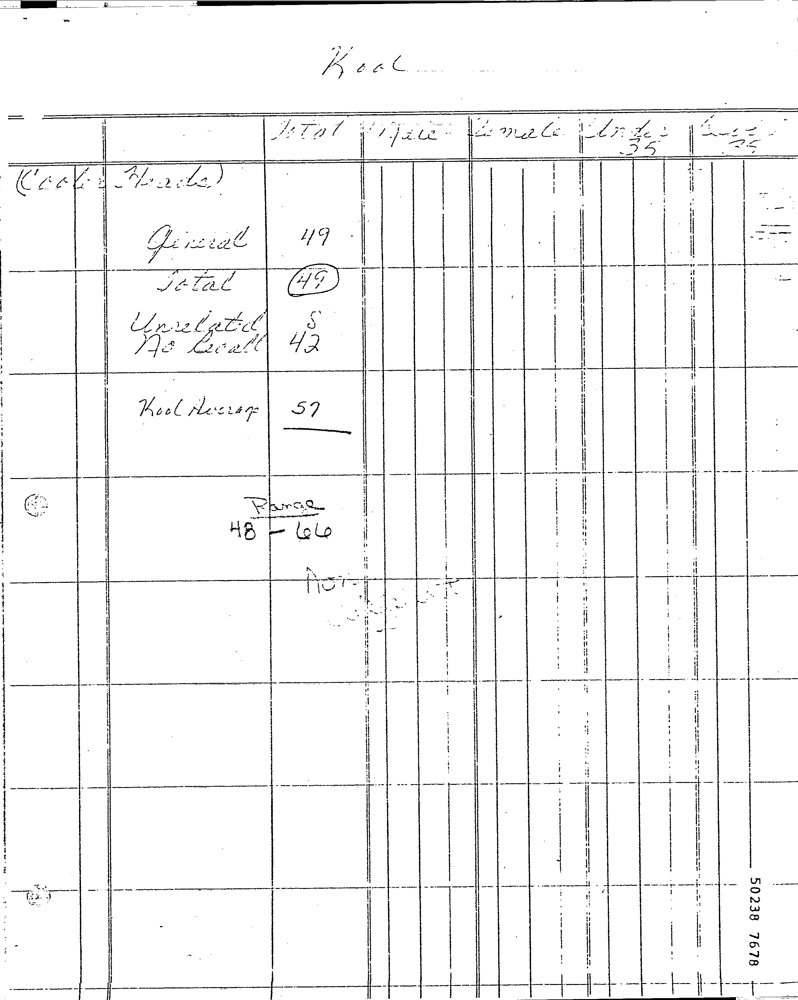 Kool
Total Male Female Under 35 Over 35
(Cooler Heads)
General 49
Total 49
Unrelated 8
No Recall 42
Kool Average 57
Range
48 - 66
50238 7678